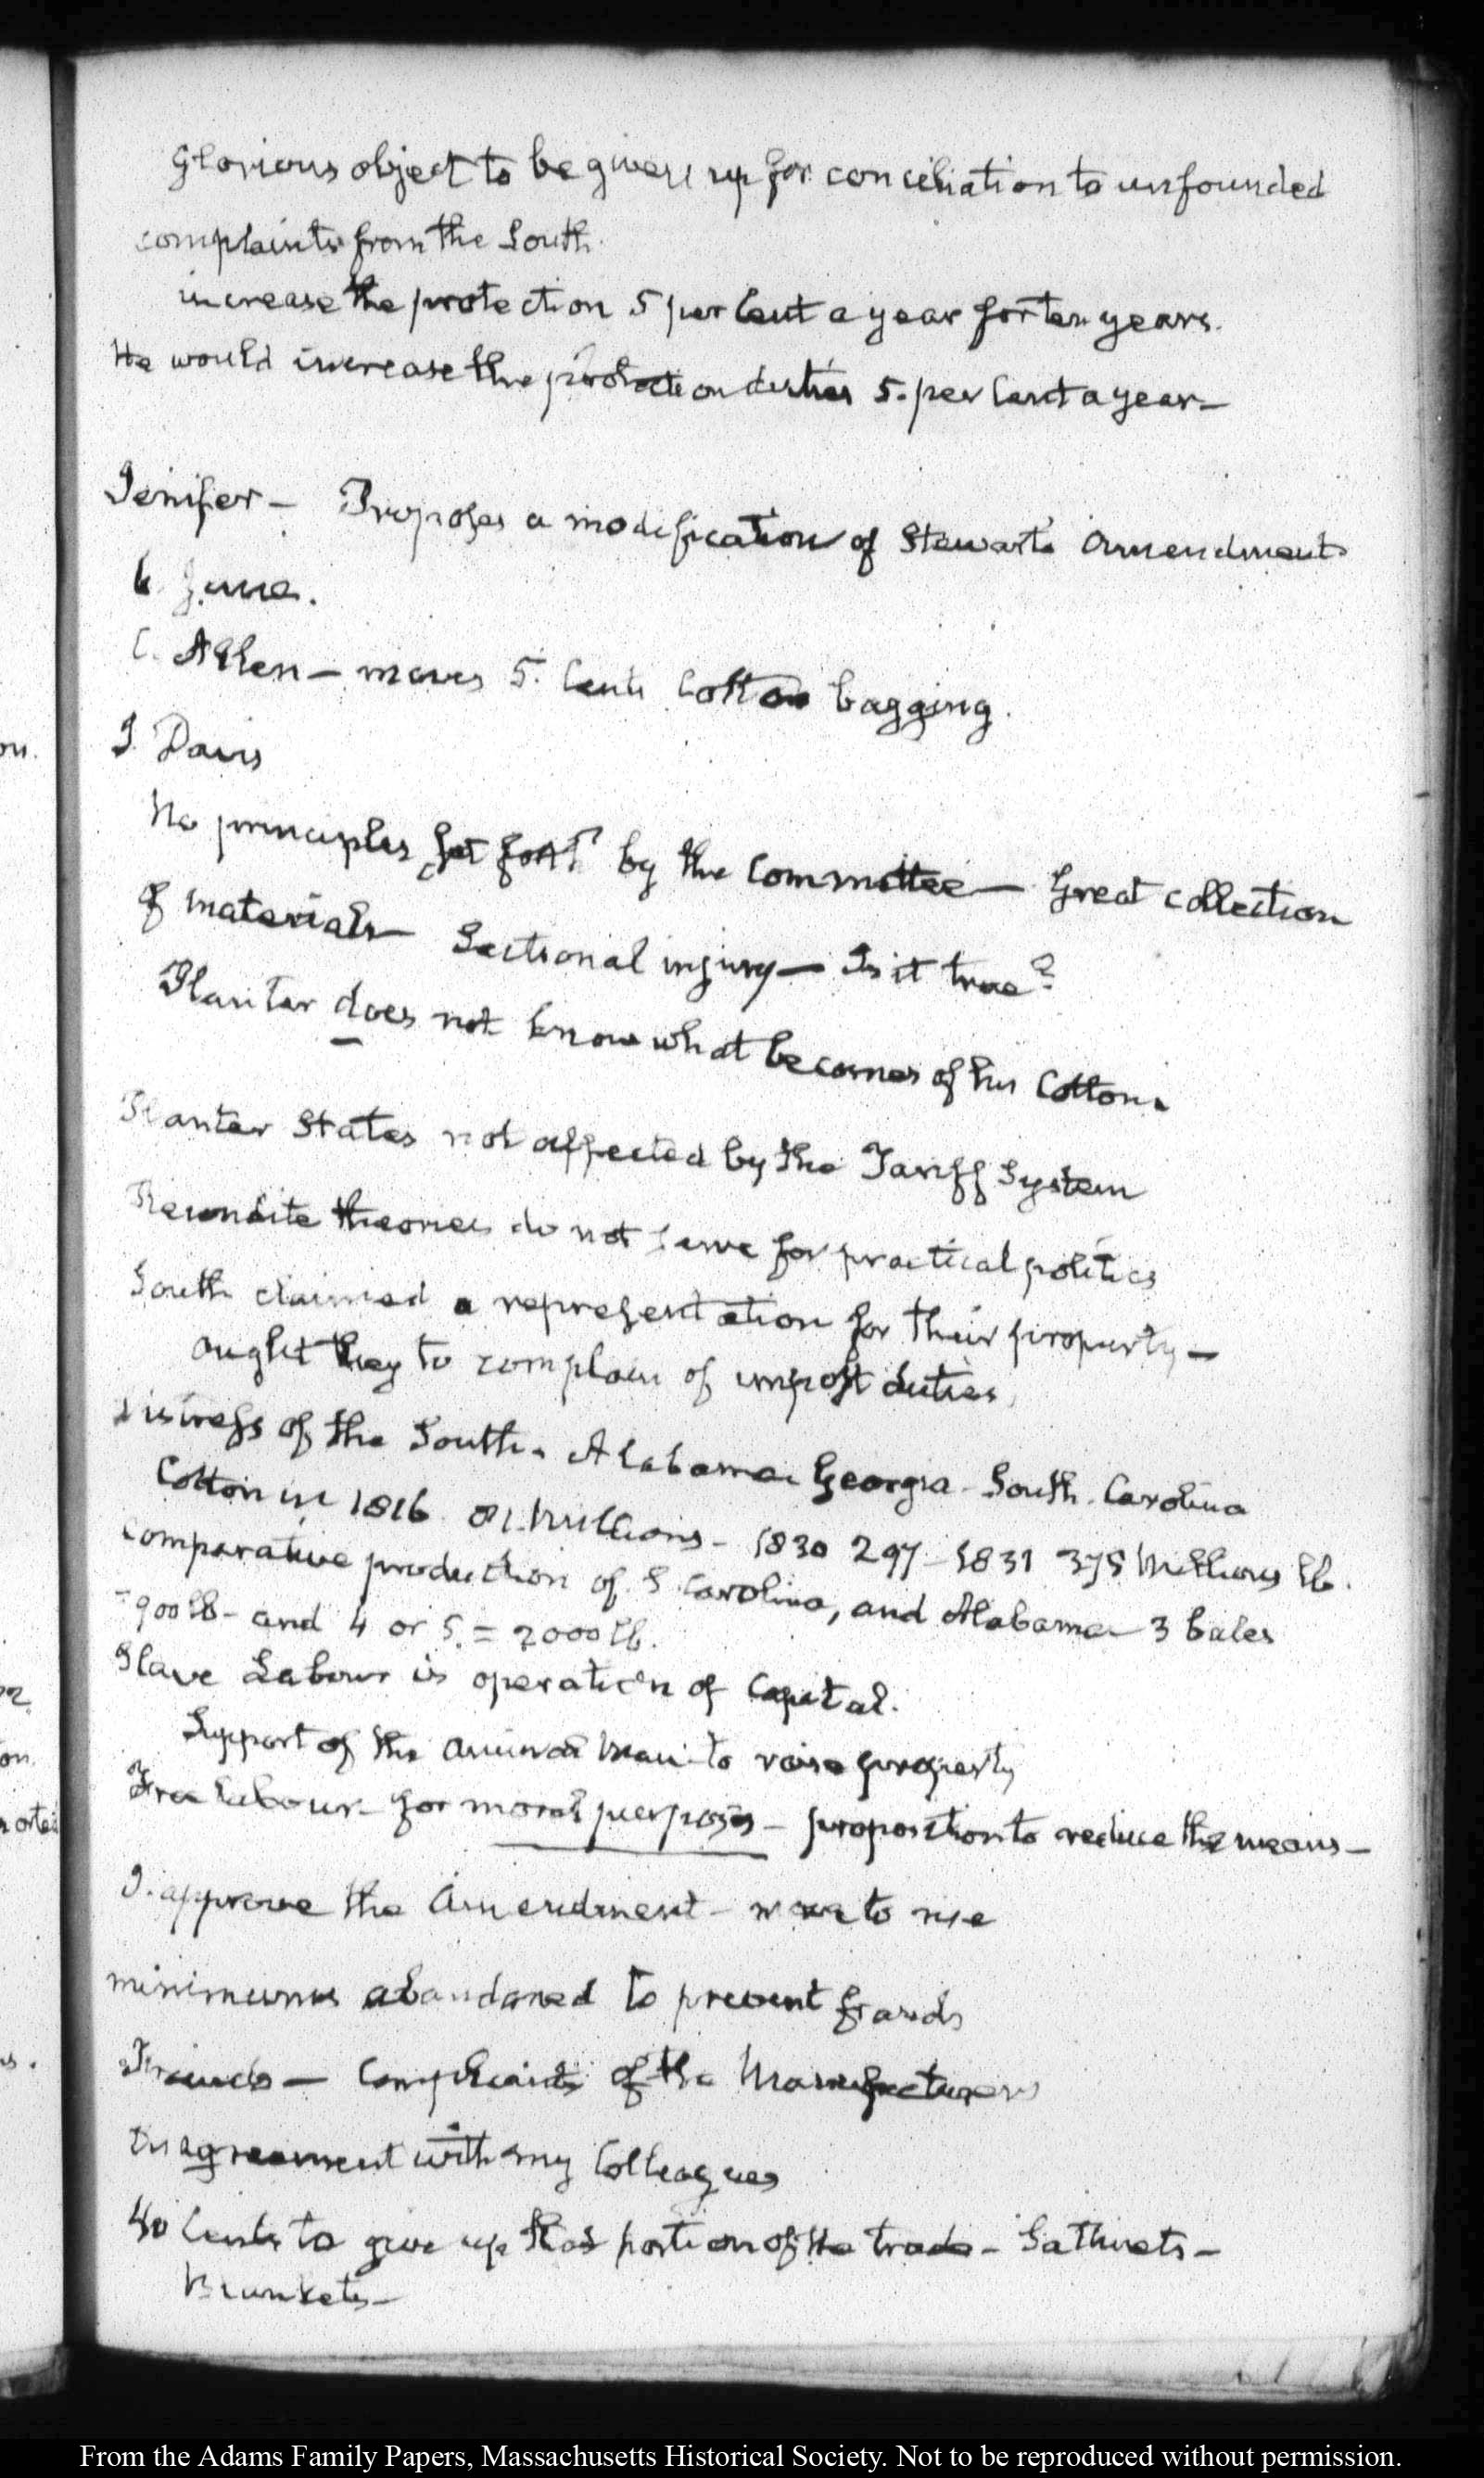 glorious object to be given up for conciliation to unfounded
complaints from the South.
increase the protection 5 per Cent a year for ten years.
He would increase the protection duties 5. per Cent a year—
Jenifer— Proposes a modification of Stewart's Amendment
6. June.
C. Allen— moves 5. Cents Cotton bagging.
J. Davis
No principles set forth by the Committee— Great collection
of materials— Sectional injury— Is it true?
Planter does not know what becomes of his Cotton.
Planter States not affected by the Tariff System
Recondite theories do not serve for practical politics
South claimed a representation for their property—
ought they to complain of impost duties
distress of the South. Alabama Georgia. South. Carolina
Cotton in 1816 81. Millions— 1830 297— 1831 375 Millions lb.
Comparative production of S. Carolina, and Alabama— 3 bales
=900 lb— and 4 or 5. = 2000 lb.
Slave Labour is operation of Capital.
Support of the animal man to raise property
Free labour— for moral purposes— proposition to reduce the means—
I. approve the Amendment— to rise
minimums abandoned to prevent frauds
Frauds— Complaints of the Manufacturers
Disagreement with my Colleagues
40 Cents to give up that portion of the trade— Satinets—
Blankets—
on.
on.
orted
s.
From the Adams Family Papers, Massachusetts Historical Society. Not to be reproduced without permission.